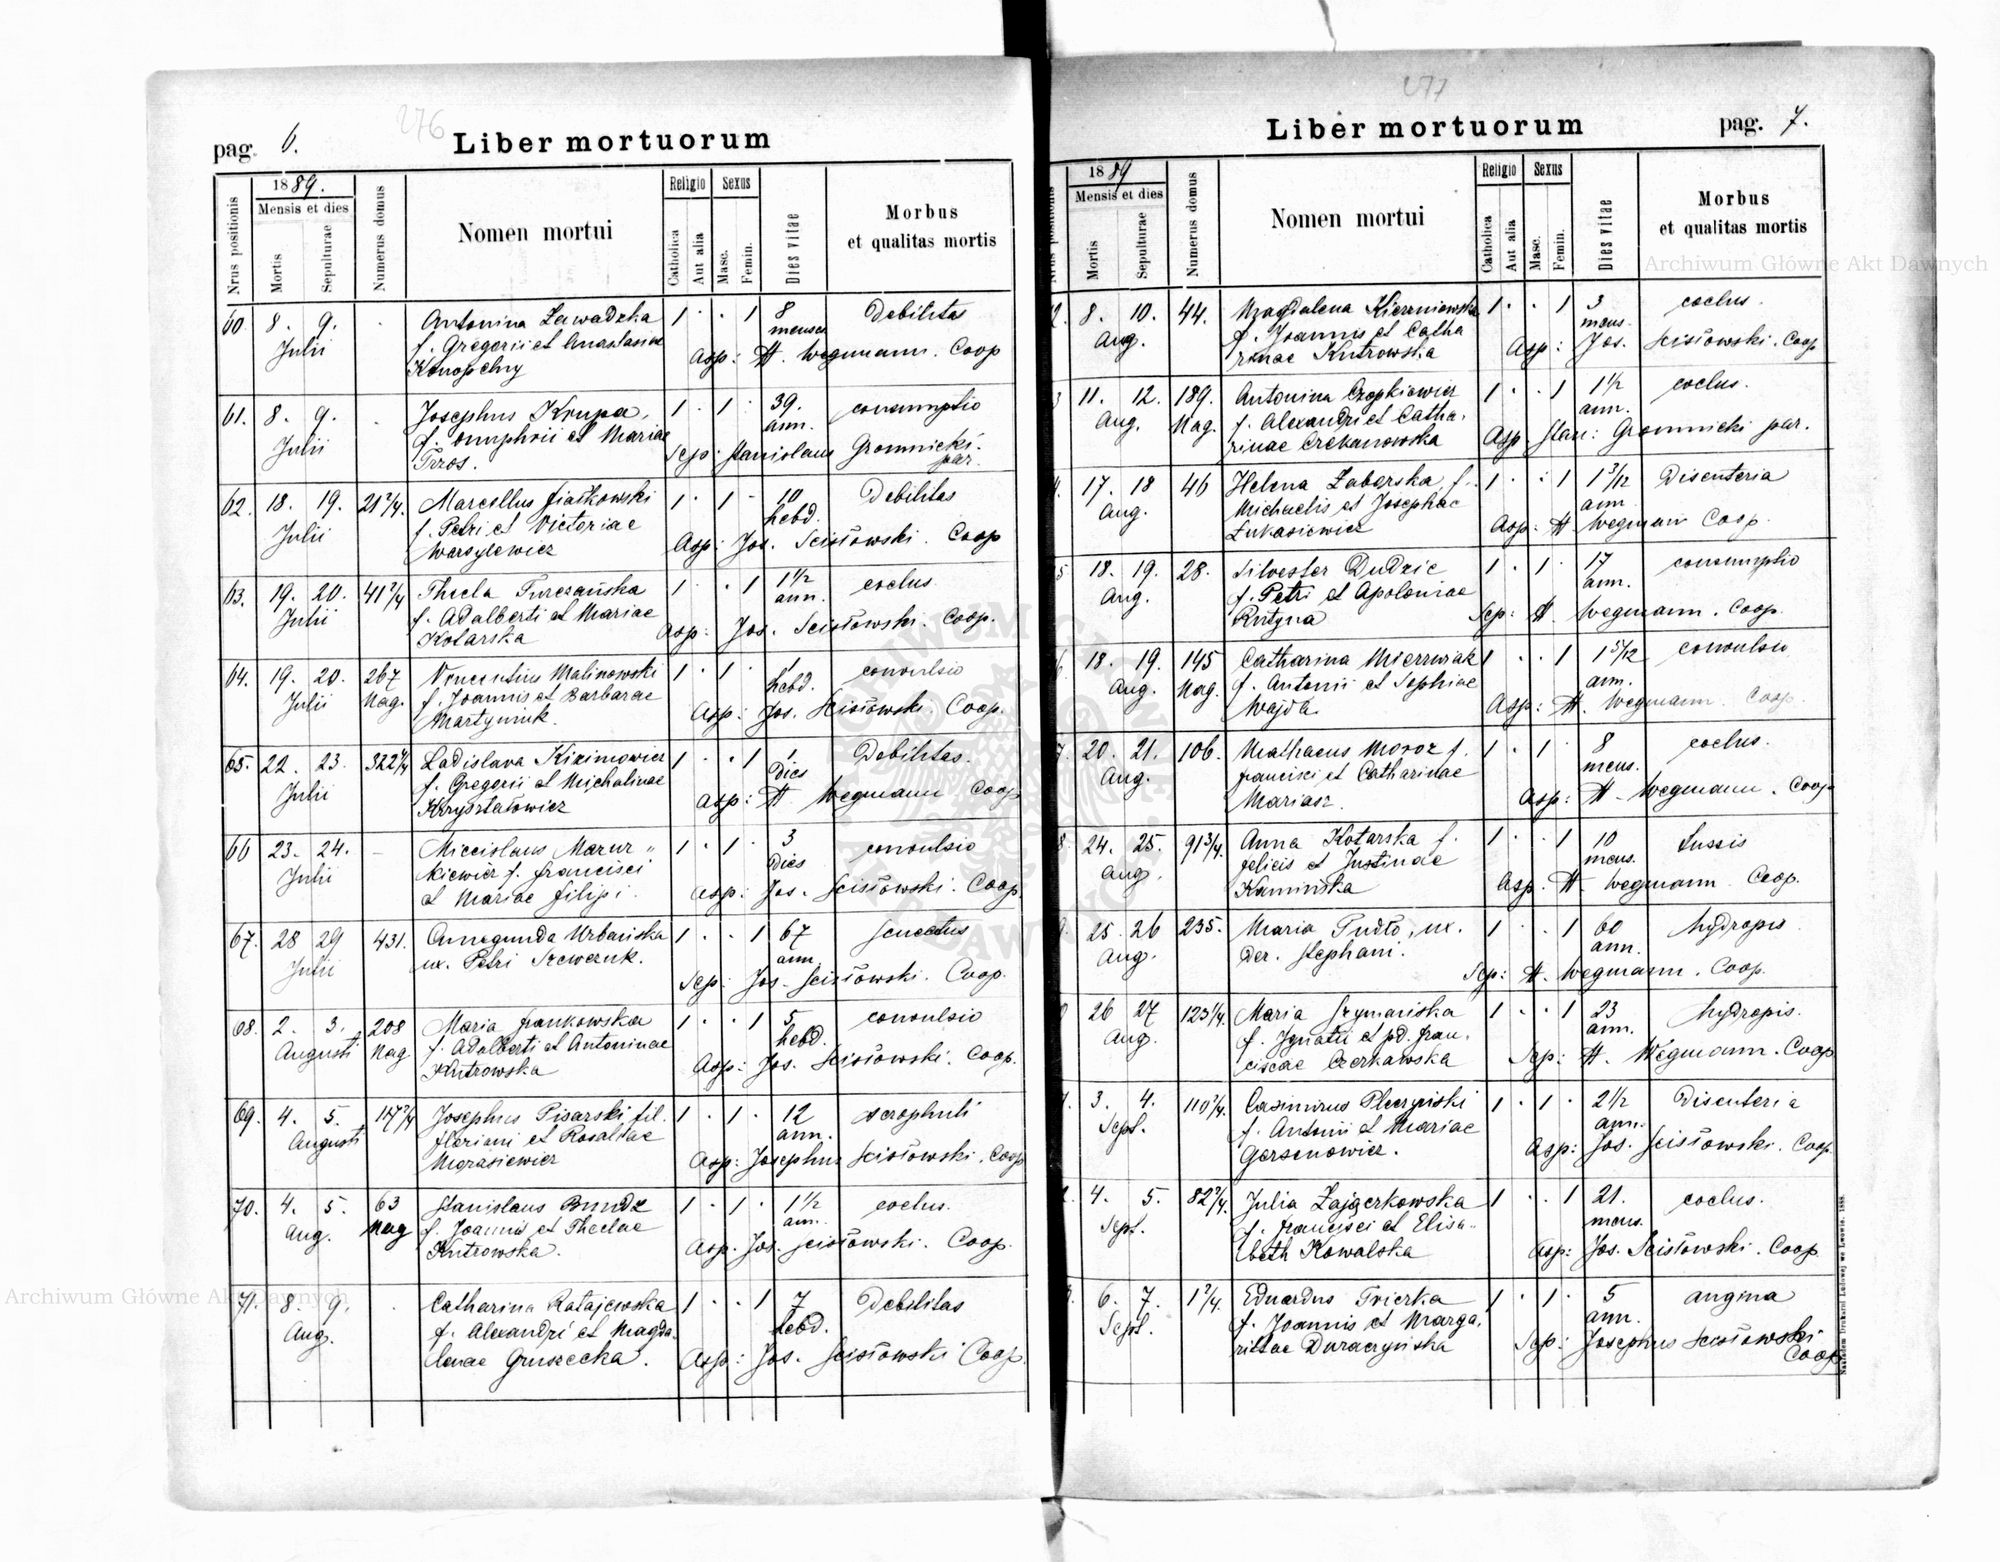 276
pag. 6.
Liber mortuorum
Nrus positionis
1889.
Mensis et dies
Mortis
Sepulturae
Numerus domus
Nomen mortui
Religio
Catholica
Aut alia
Sexus
Masc.
Femin.
Dies vitae
Morbus
et qualitas mortis
60. 8. 9. Antonina Zawadzka 1 . . 1 8 Debilitas
Julii f. Gregorii et Anastasiae menses
Konopelny Asp: H. Wegmann. Coop
61. 8. 9. Josephus Krupa, 1 . 1 . 39. consumptio
Julii f. Onuphrii et Mariae ann.
Tzos. Sep: Stanislaus Gromnicki par.
62. 18. 19. 21 2/4. Marcellus Fiałkowski 1 . 1 10 Debilitas
Julii f. Petri et Victoriae hebd.
Warsylewicz Asp: Jos. Scisłowski. Coop
63. 19. 20. 41 2/4 Thecla Turczańska 1 . . 1 1½ coclus
Julii f. Adalberti et Mariae ann.
Kotarska Asp: Jos. Scisłowski. Coop.
64. 19. 20. 267 Vincentius Malinowski 1 . 1 1 convulsio
Julii Nag. f. Joannis et Barbarae hebd.
Martyniuk. Asp: Jos. Scisłowski. Coop.
65. 22. 23. 322 4/4 Ladislava 1 . . 1 1 Debilitas.
Julii f. Gregorii et Michalinae Dies
Kryształowicz Asp: H. Wegmann Coop
66 23. 24. – Miecislaus Mazur„ 1 . 1 . 3 convulsio
Julii kiewicz f. Francisci Dies
et Mariae Filipi. Asp: Jos. Scisłowski. Coop.
67. 28 29 431. Cunegunda Urbańska 1 . . 1 67 senectus
Julii ux. Petri Szewczuk. ann.
Sep: Jos. Scisłowski. Coop.
68. 2. 3. 208 Maria Frankowska 1 . . 1 5 convulsio
Augusti Nag f. Adalberti et Antoninae hebd.
Kutrowska Asp: Jos. Scisłowski. Coop.
69. 4. 5. Josephus Pisarski fil. 1 . 1 . 12 scrophuli
Augusti Floriani et Rosaliae ann.
Morasiewicz Asp: Josephus Scisłowski. Coop
70. 4. 5. 63 Stanislaus Bundz 1 . 1 . 1½ coclus.
Aug. Nag f. Joannis et Theclae ann.
Kutrowska. Asp. Jos. Scisłowski. Coop.
71. 8. 9. Catharina Ratajewska 1 . . 1 7 Debilitas
Aug. f. Alexandri et Magda- hebd.
lenae Gruszecka. Asp: Jos. Scisłowski Coop.
277
Liber mortuorum
pag. 7.
Nrus positionis
1889
Mensis et dies
Mortis
Sepulturae
Numerus domus
Nomen mortui
Religio
Catholica
Aut alia
Sexus
Masc.
Femin.
Dies vitae
Morbus
et qualitas mortis
2. 8. 10. 44. Magdalena Kierzniowska 1 . . 1 3 coclus.
Aug. f. Joannis et Catha mens.
rinae Kutrowska Asp: Jos. Scisłowski. Coop
3 11. 12. 189. Antonina Czopkiewicz 1 . . 1 1½ coclus.
Aug. Nag. f. Alexandri et Catha, ann.
rinae Czekanowska Asp. Stan: Gromnicki par.
4. 17. 18 46 Helena Zaborska, f. 1 . . 1 1 3/12 Disenteria
Aug. Michaelis et Josephae ann
Łukasiewicz Asp: H Wegman Coop.
5 18. 19. 28. Silvester Dudzic 1 . 1 . 17 consumptio
Aug. f. Petri et Apoloniae ann.
Rutyna Sep: H. Wegmann. Coop.
6 18. 19. 145 Catharina Mierzwiak 1 . . 1 1 5/12 convulsio
Aug. Nag. f. Antonii et Sophiae ann.
Wajda Asp: H. Wegmann. Coop.
7. 20. 21. 106. Mathaeus Moroz f. 1 . 1 8 coclus.
Aug. Francisci et Catharinae mens.
Mariasz. Asp: H. Wegmann. Coop.
8. 24. 25. 91 3/4. Anna Kotarska f. 1 . . 1 10 tussis
Aug. Felicis et Justinae mens.
Kamińska Asp. H. Wegmann. Coop.
9. 25. 26 235. Maria Pudło, ux. 1 . . 1 60 hydropis
Aug. der. Stephani. ann.
Sep: H. Wegmann. Coop.
0 26 27 123 1/4. Maria Szymańska 1 . . 1 23 hydropis.
Aug. f. Ignatii et pd. Fran, ann.
ciscae Czerkawska Sep: H. Wegmann. Coop
1. 3. 4. 110 2/4. Casimirus Pleczyński 1 . 1 . 2½ Disenteria
Sept. f. Antonii et Mariae ann.
Gersonowicz. Asp: Jos. Scisłowski. Coop.
2. 4. 5. 82 2/4. Julia Zajączkowska 1 . . 1 21. coclus.
Sept. f. Francisci et Elisa„ mens.
beth Kowalska Asp: Jos. Scisłowski. Coop
3. 6. 7. 1 2/4. Eduardus Trierka 1 . 1 . 5 angina
Sept. f. Joannis et Marga, ann.
rittae Duraczyńska Sep: Josephus Scisłowski. Coop
Nakładem Drukarni Ludowej we Lwowie. 1888.
Archiwum Główne Akt Dawnych
Archiwum Główne Akt Dawnych
ARCHIWUM GŁÓWNE AKT DAWNYCH